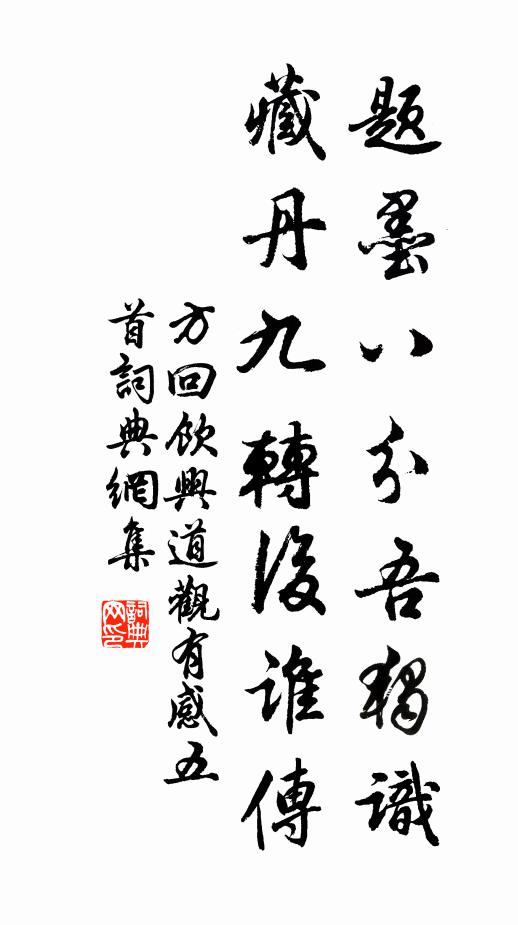 題墨八分吾獨識
藏丹九轉後誰傳
方回飲興道觀有感五
首詞典網集
詞典网印